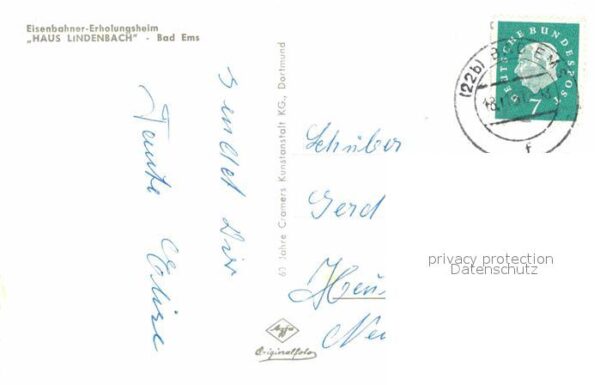 Eisenbahner-Erholungsheim
„HAUS LINDENBACH" - Bad Ems
sendet Dir
Tante Elise
60 Jahre Cramers Kunstanstalt KG., Dortmund
Agfa
Originalfoto
Schüber
Gerd
DEUTSCHE BUNDESPOST
7
(22b) BAD EMS
f
privacy protection
Datenschutz